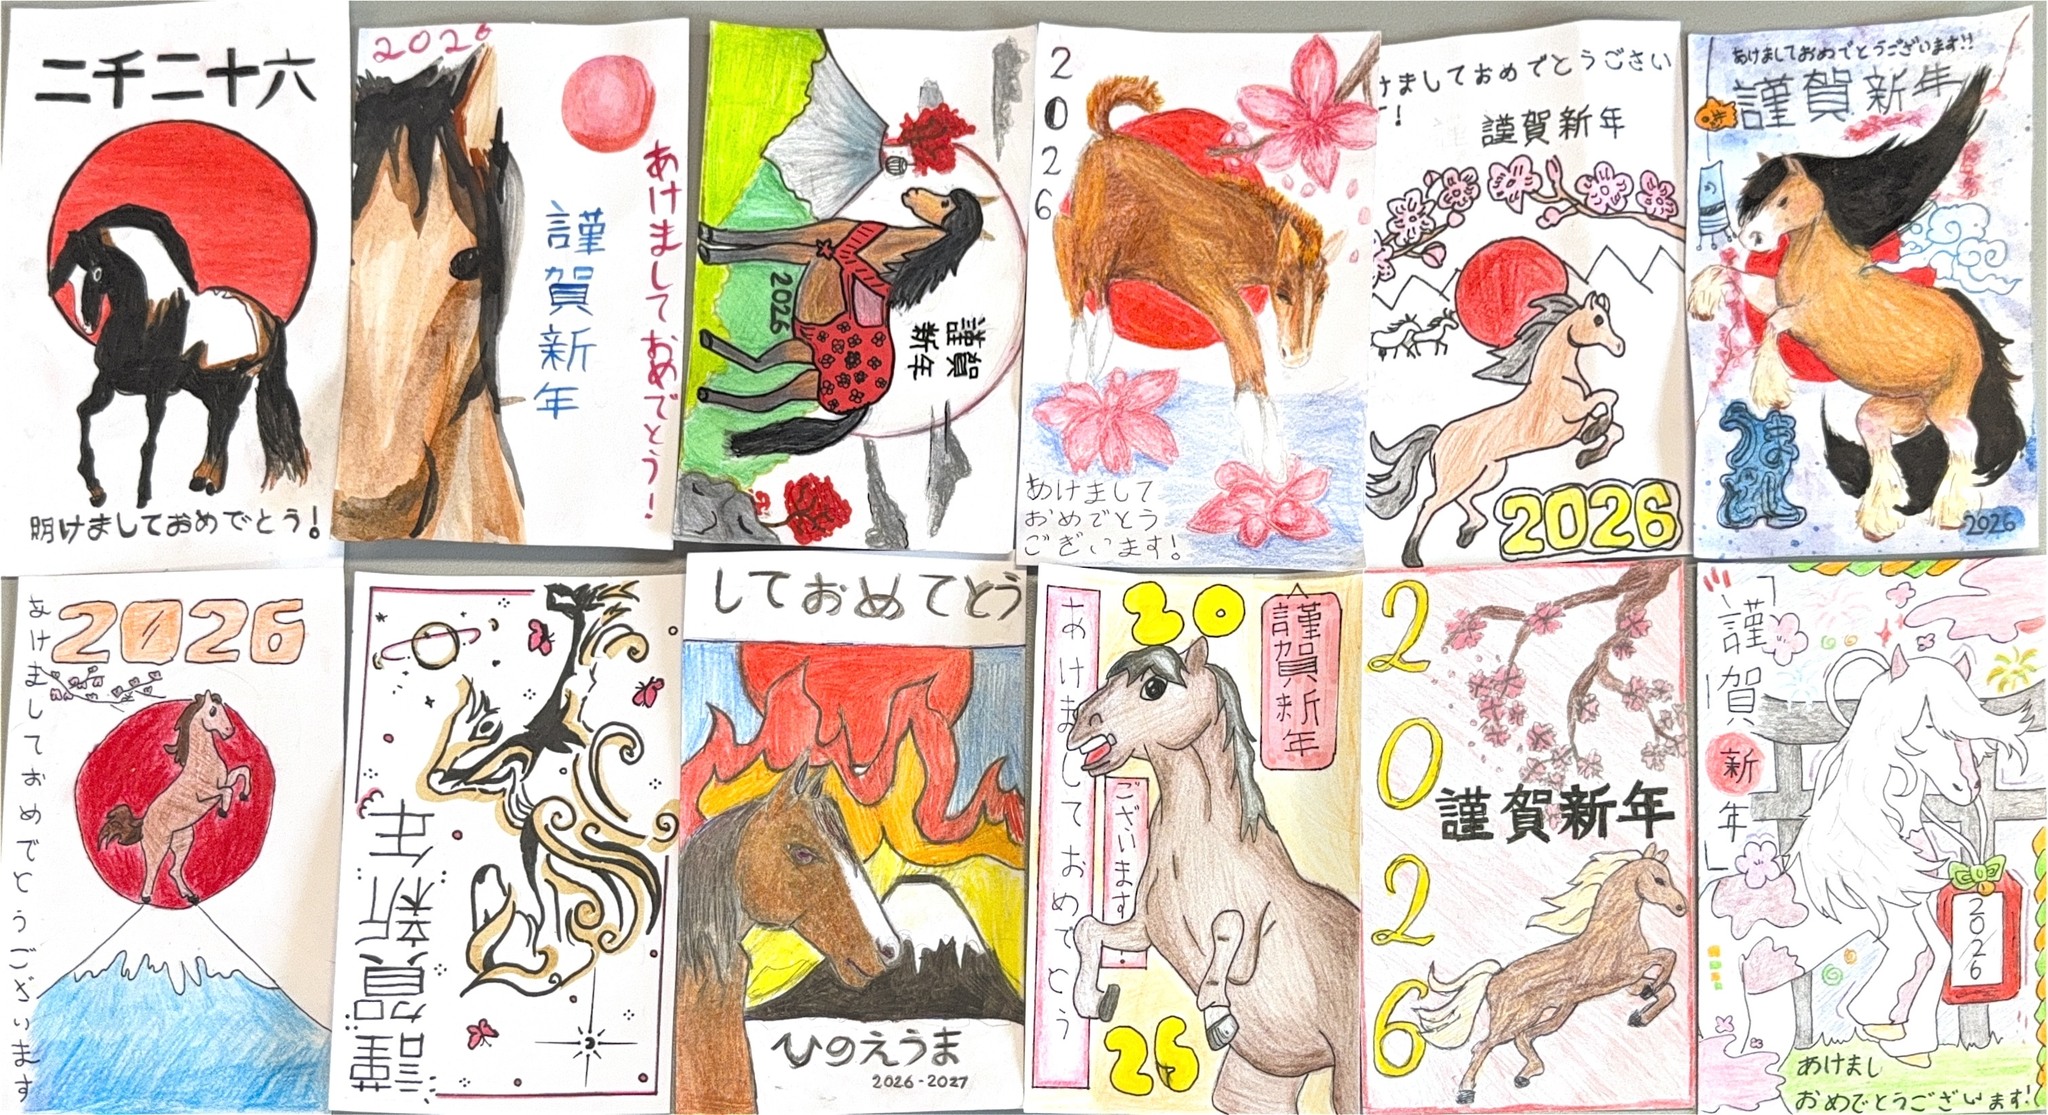 二千二十六
明けましておめでとう!
2026
あけましておめでとう!
謹賀新年
2026
謹賀
新年
2026
あけまして
おめでとう
ございます!
けましておめでとうござい
!
謹賀新年
2026
あけましておめでとうございます!!
謹賀新年
うまどし
2026
2026
あけましておめでとうございます
謹賀新年
しておめでとう
ひのえうま
2026-2027
20
謹賀新年
あけましておめでとう
ございます
26
2026
謹賀新年
「謹賀新年」
2026
あけまし
おめでとうございます!